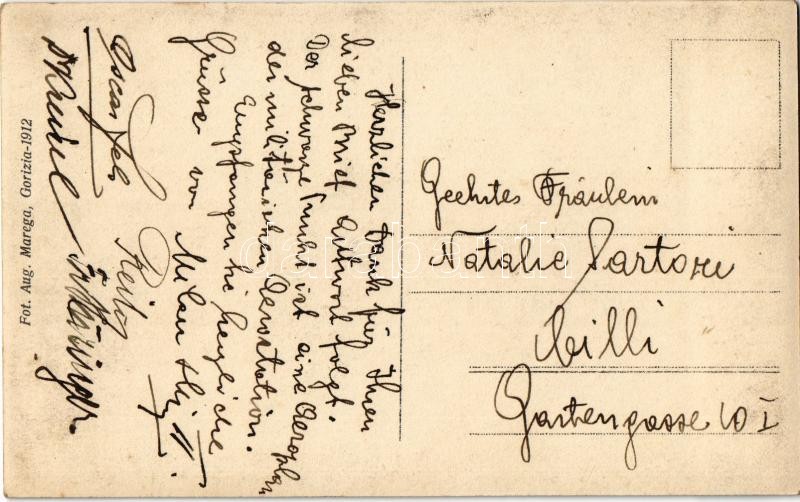 Herzlichen Dank für Ihren
lieben Brief Antwort folgt.
Der schwarze Punkt ist eine Aeroplan
der militärischen Aerostation.
Empfangen Sie herzliche
Grüsse von Milan
Oscar
Geehrtes Fräulein
Natalie Sartori
Cilli
Gartengasse 10 I
Fot. Aug. Marega, Gorizia-1912